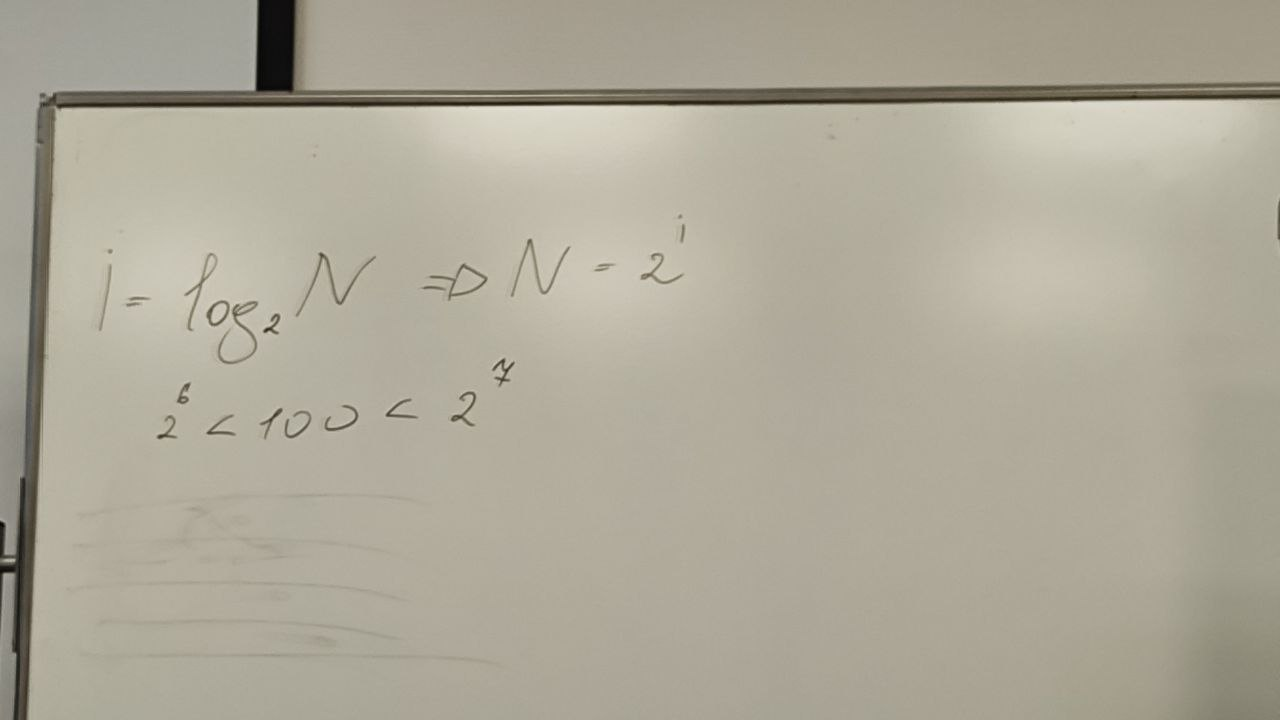 i = log₂ N ⇒ N = 2ⁱ
2⁶ < 100 < 2⁷